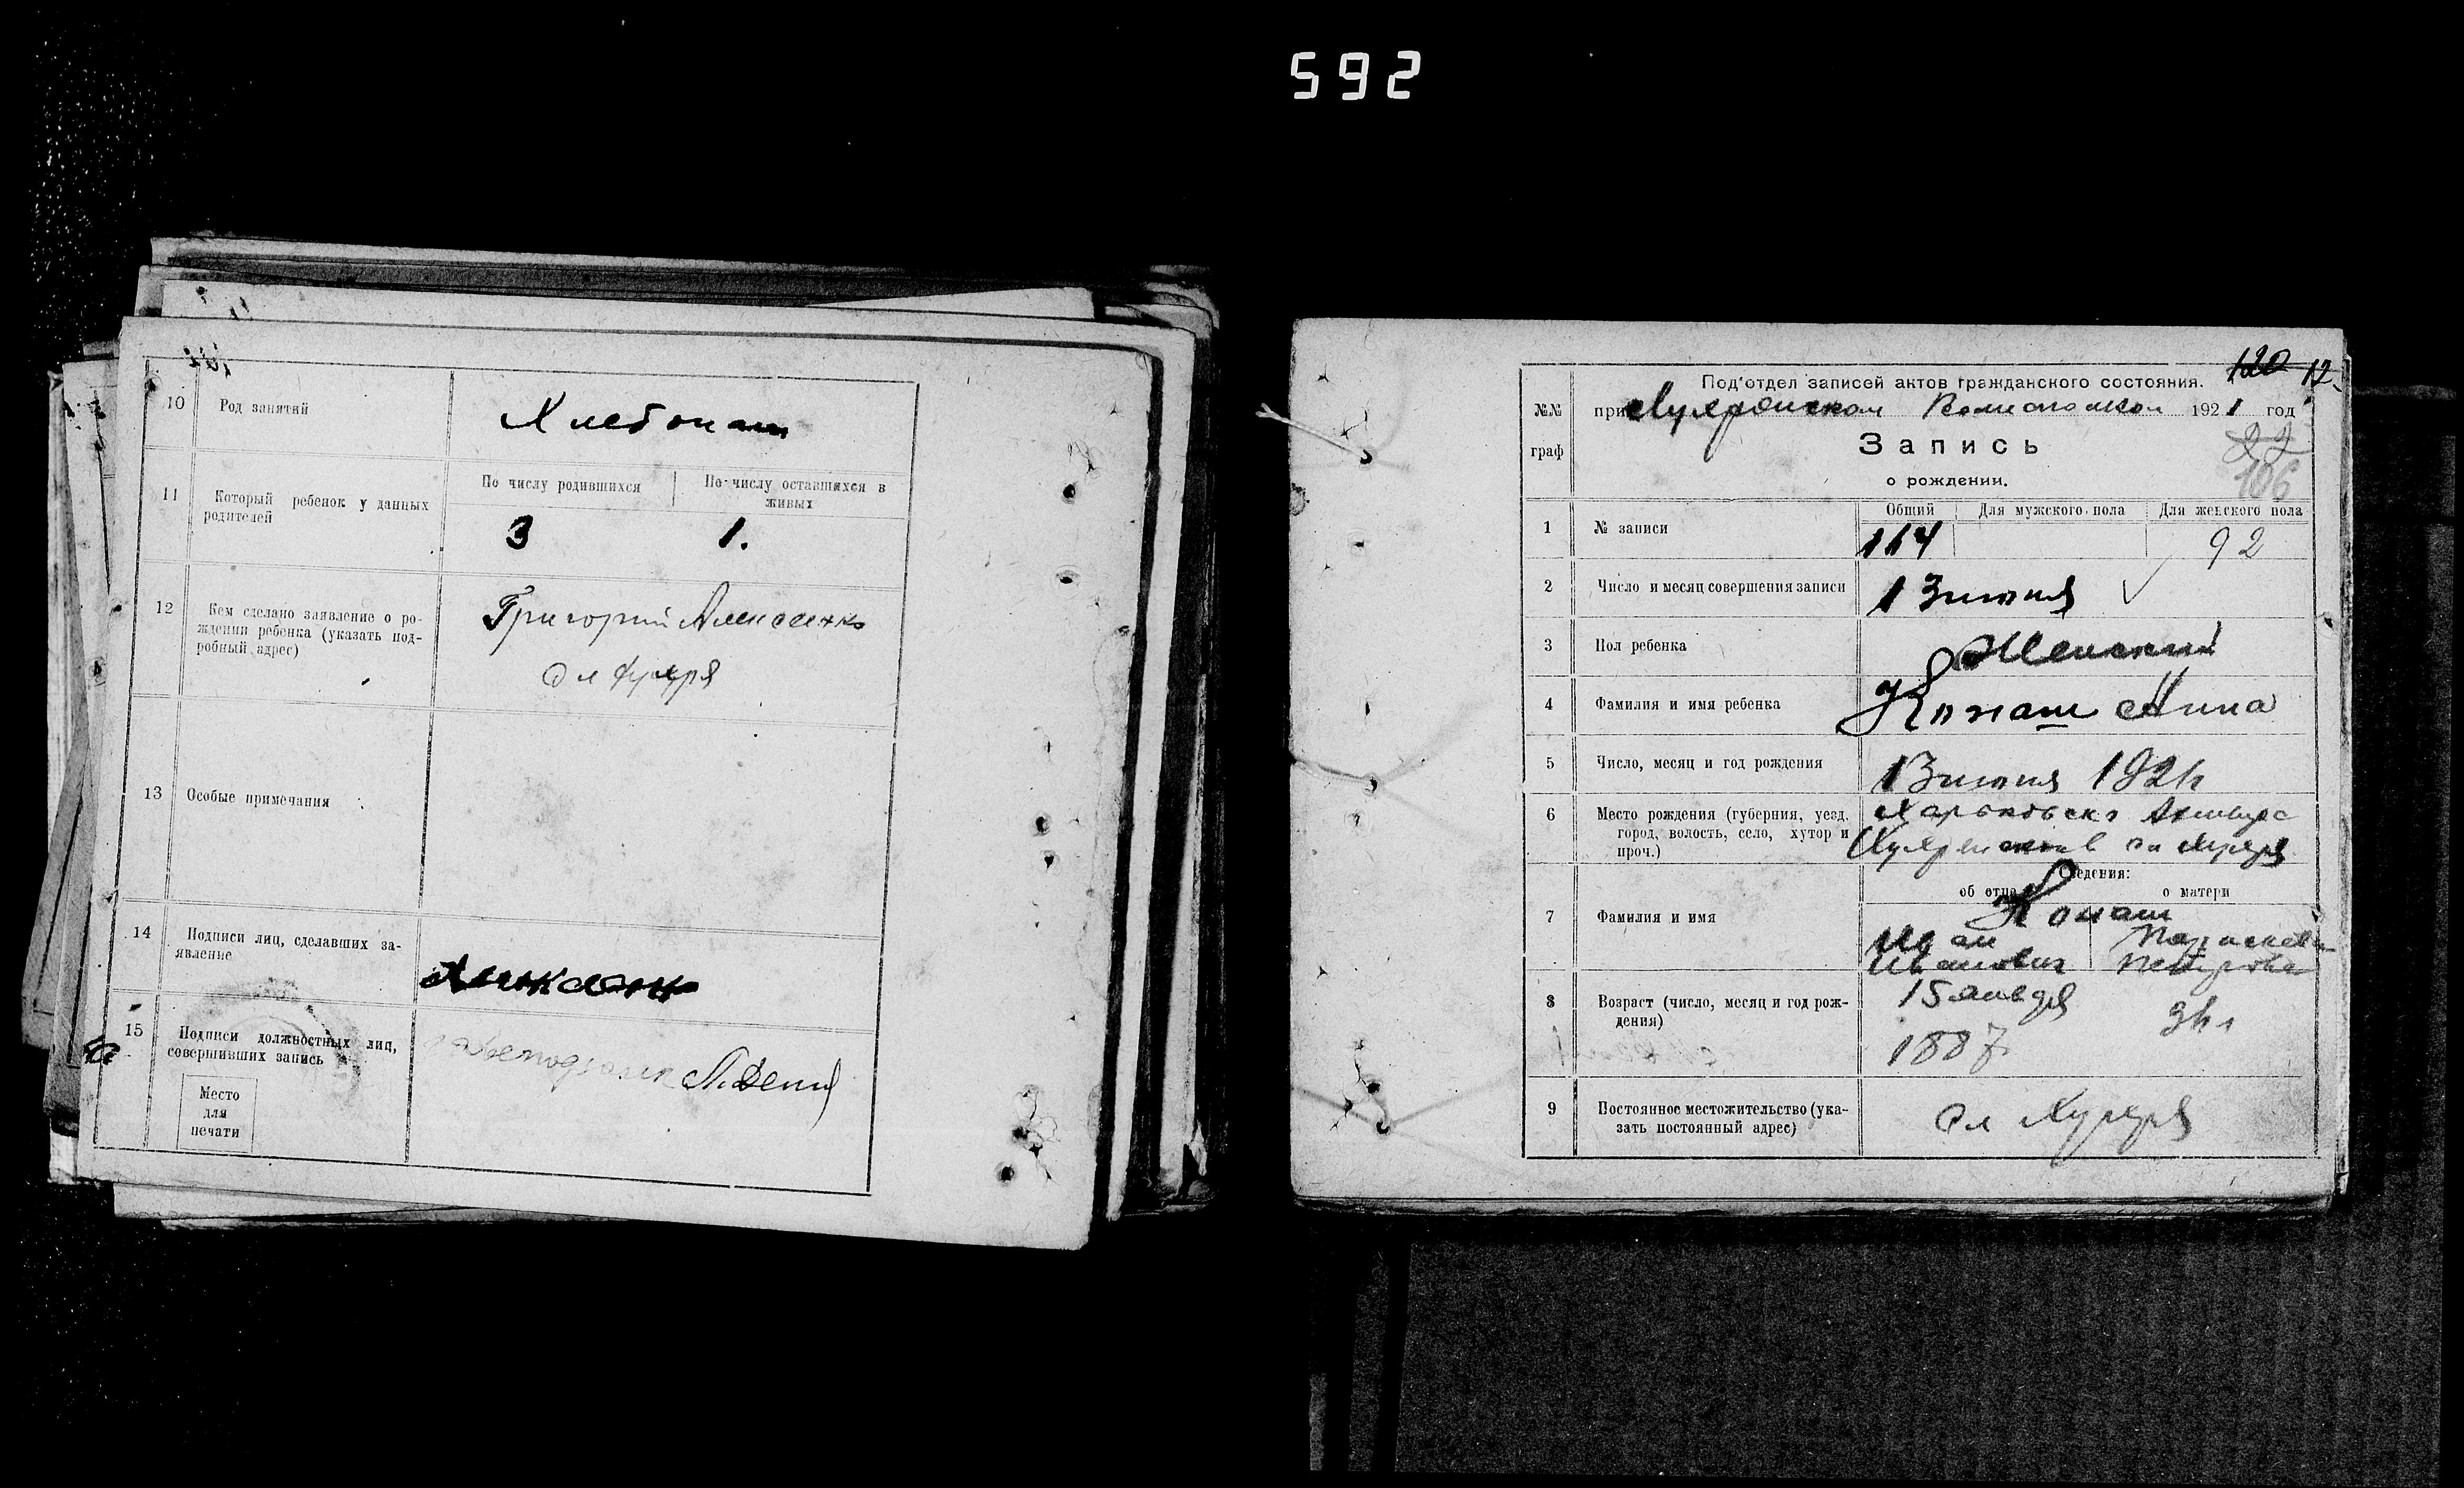 592
10 Род занятий
Хлебопаш
11 Который ребенок у данных родителей
По числу родившихся
По числу оставшихся в живых
3 1.
12 Кем сделано заявление о ро-
ждении ребенка (указать под-
робный адрес)
Григорий Алексенко
13 Особые примечания
14 Подписи лиц, сделавших за-
явление
15 Подписи должностных лиц,
совершивших запись
Место
для
печати
120 12
Под'отдел записей актов гражданского состояния.
№№
граф
при Волисполком 1921 год
22
106
Запись
о рождении.
Общий Для мужского пола Для женского пола
1 № записи 164 92
2 Число и месяц совершения записи 13 июня
3 Пол ребенка Женский
4 Фамилия и имя ребенка Конаш Анна
5 Число, месяц и год рождения 13 июня 1921
6 Место рождения (губерния, уезд,
город, волость, село, хутор и
проч.)
Харьковск
Сведения:
об отце о матери
7 Фамилия и имя
Конаш
Иван Параскева
Иванович Петровна
8 Возраст (число, месяц и год рож-
дения)
15 января
1887
9 Постоянное местожительство (ука-
зать постоянный адрес)